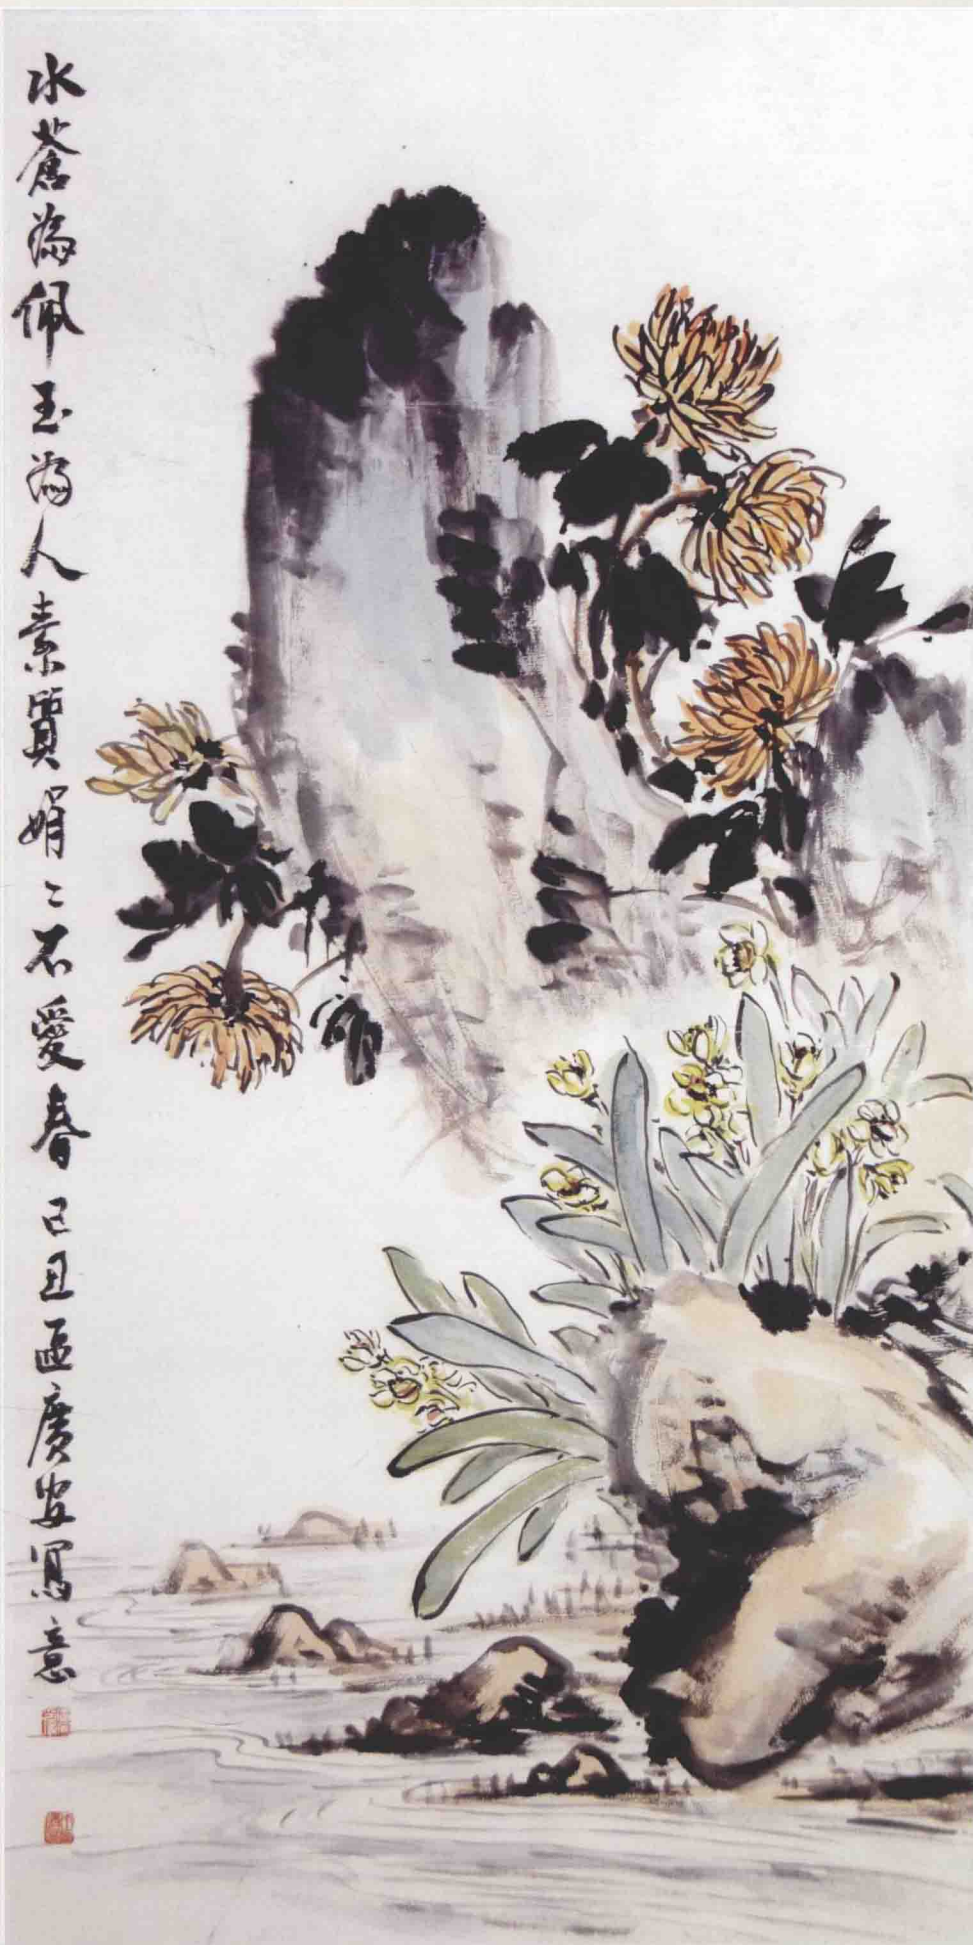 水蒼為佩玉為人素質娟〻不愛春己丑區廣安寫意